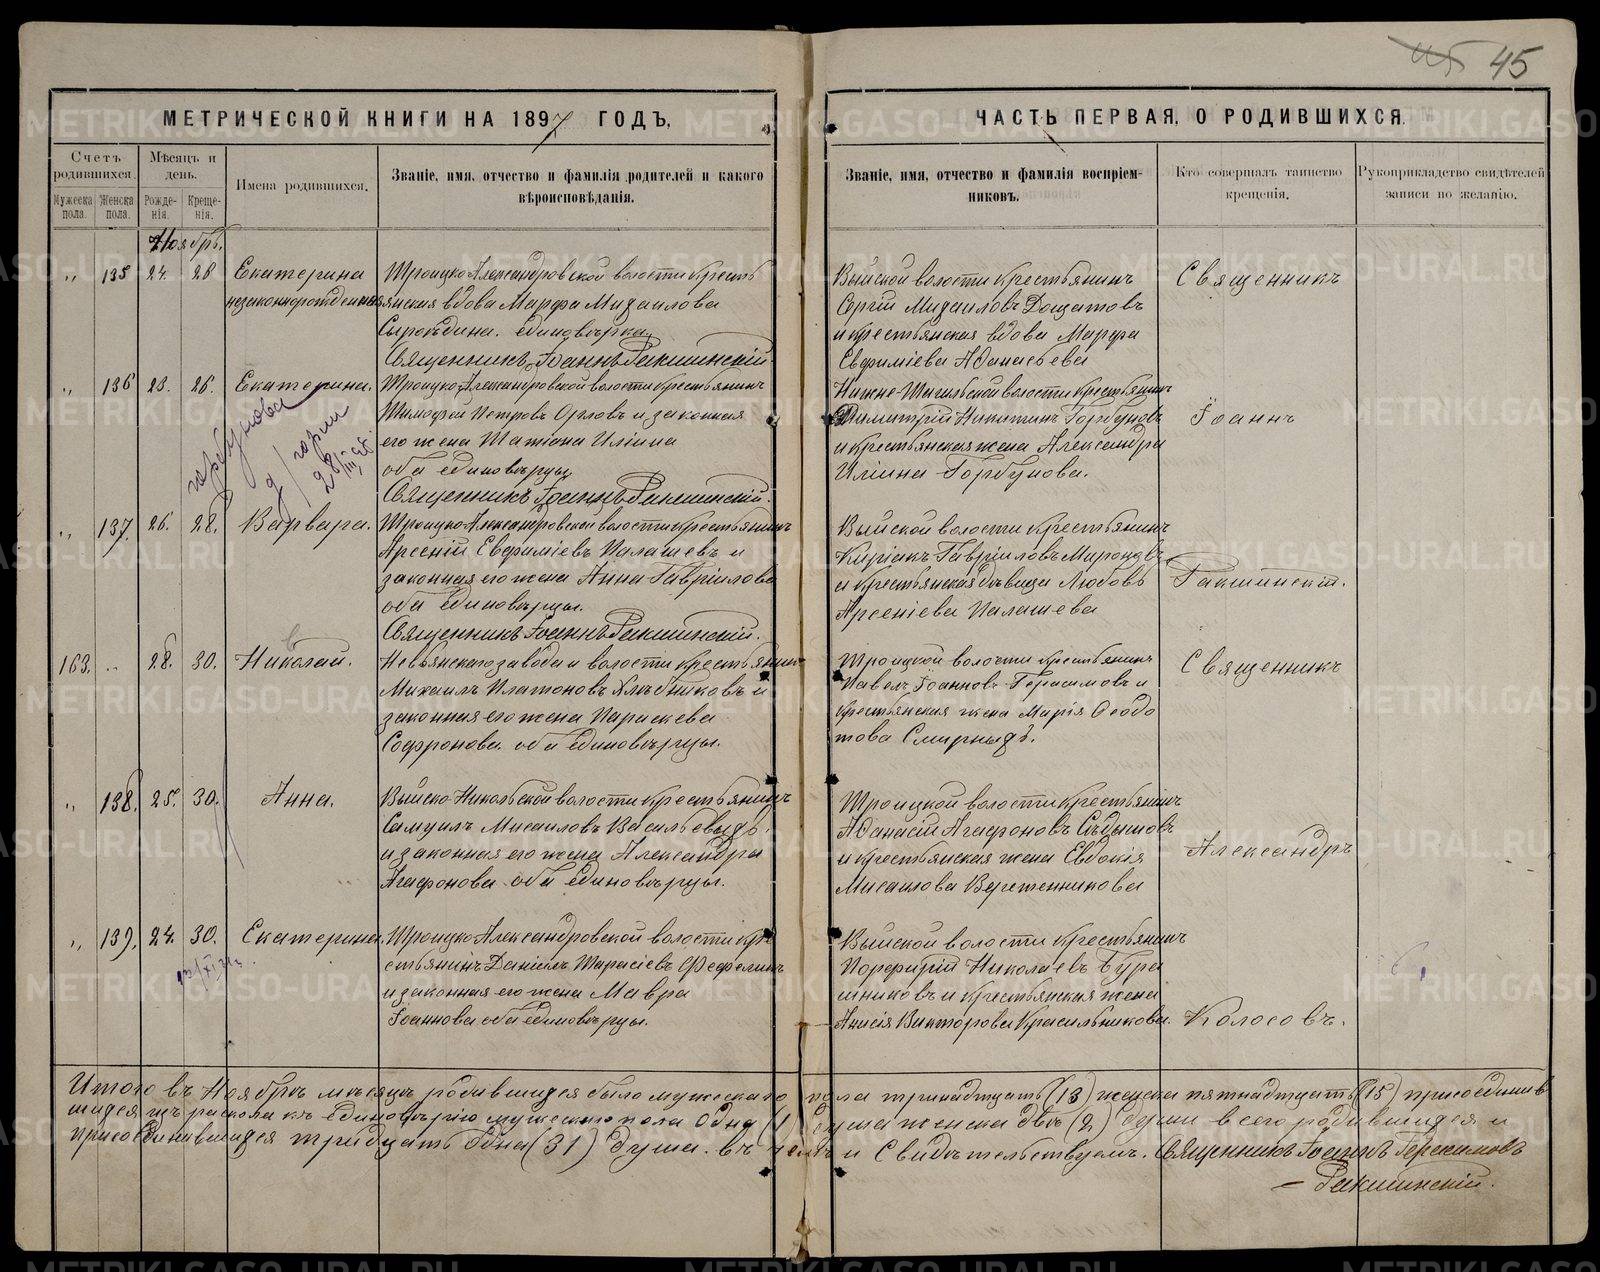 45
МЕТРИЧЕСКОЙ КНИГИ НА 1897 ГОДЪ,
ЧАСТЬ ПЕРВАЯ, О РОДИВШИХСЯ.
Счетъ родившихся.
Мужеска пола.
Женска пола.
Мѣсяцъ и день.
Рожде-
нія.
Креще-
нія.
Имена родившихся.
Званіе, имя, отчество и фамилія родителей и какого
вѣроисповѣданія.
Званіе, имя, отчество и фамилія воспріем-
никовъ.
Кто совершалъ таинство
крещенія.
Рукоприкладство свидѣтелей
записи по желанію.
Ноябрь.
„ 135 24. 28 Екатерина
незаконнорожденная
Троицко-Александровской волости кресть
янская вдова Марфа Михаилова
Сыроѣдина. единовѣрка.
Священникъ Іоаннъ Ракшинскій.
Выйской волости крестьянинъ
Сергій Михаиловъ Дощатовъ
и крестьянская вдова Марфа
Евфиміева Аѳанасьева
Священникъ
„ 136 23. 26. Екатерина.
Горбунова
28/III
Троицко-Александровской волости крестьянинъ
Тимофей Петровъ Орловъ и законная
его жена Татіана Иліина
оба единовѣрцы
Священникъ Іоаннъ Ракшинскій.
Нижне-Тагильской волости крестьянинъ
Димитрій Никитинъ Горбуновъ
и крестьянская жена Александра
Иліина Горбунова.
Іоаннъ
„ 137. 26. 28. Варвара.
Троицко-Александровской волости крестьянинъ
Арсеній Евфиміевъ Палашевъ и
законная его жена Анна Гавріилова
оба единовѣрцы.
Священникъ Іоаннъ Ракшинскій.
Выйской волости крестьянинъ
Киріакъ Гавріиловъ Мироновъ
и крестьянская дѣвица Любовь
Арсеніева Палашева
Ракшинскій.
163. „ 28. 30. Николай.
Невьянскаго завода и волости крестьянинъ
Михаилъ Платоновъ Хлѣбниковъ и
законная его жена Параскева
Софронова. оба единовѣрцы.
Троицкой волости крестьянинъ
Павелъ Іоанновъ Герасимовъ и
крестьянская жена Марія Ѳеодо
това Смирныхъ.
Священникъ
„ 138. 25. 30. Анна.
Выйско-Никольской волости крестьянинъ
Самуилъ Мисаиловъ Васильевыхъ.
и законная его жена Александра
Агафонова оба единовѣрцы.
Троицкой волости крестьянинъ
Аѳанасій Агафоновъ Сѣдышовъ
и крестьянская жена Евдокія
Мисаилова Веретенникова
Александръ
„ 139. 24. 30. Екатерина.
Троицко-Александровской волости кре
стьянинъ Даніилъ Тарасіевъ Фефелинъ
и законная его жена Мавра
Іоаннова оба единовѣрцы.
Выйской волости крестьянинъ
Порфирій Николаевъ Бура
шниковъ и крестьянская жена
Анисія Викторова Красильникова.
Колосовъ.
Итого въ Ноябрѣ мѣсяцѣ родившихся было мужескаго пола тринадцать (13) женска пятнадцать (15) присоединив
шихся изъ раскола къ единовѣрію мужескаго пола одну (1) душа женска двѣ (2) души всего родившихся и
присоединившихся тридцать одна (31) душа. въ чемъ и Свидѣтельствуемъ. Священникъ Іоаннъ Герасимовъ
Ракшинскій.
METRIKI.GASO-URAL.RU